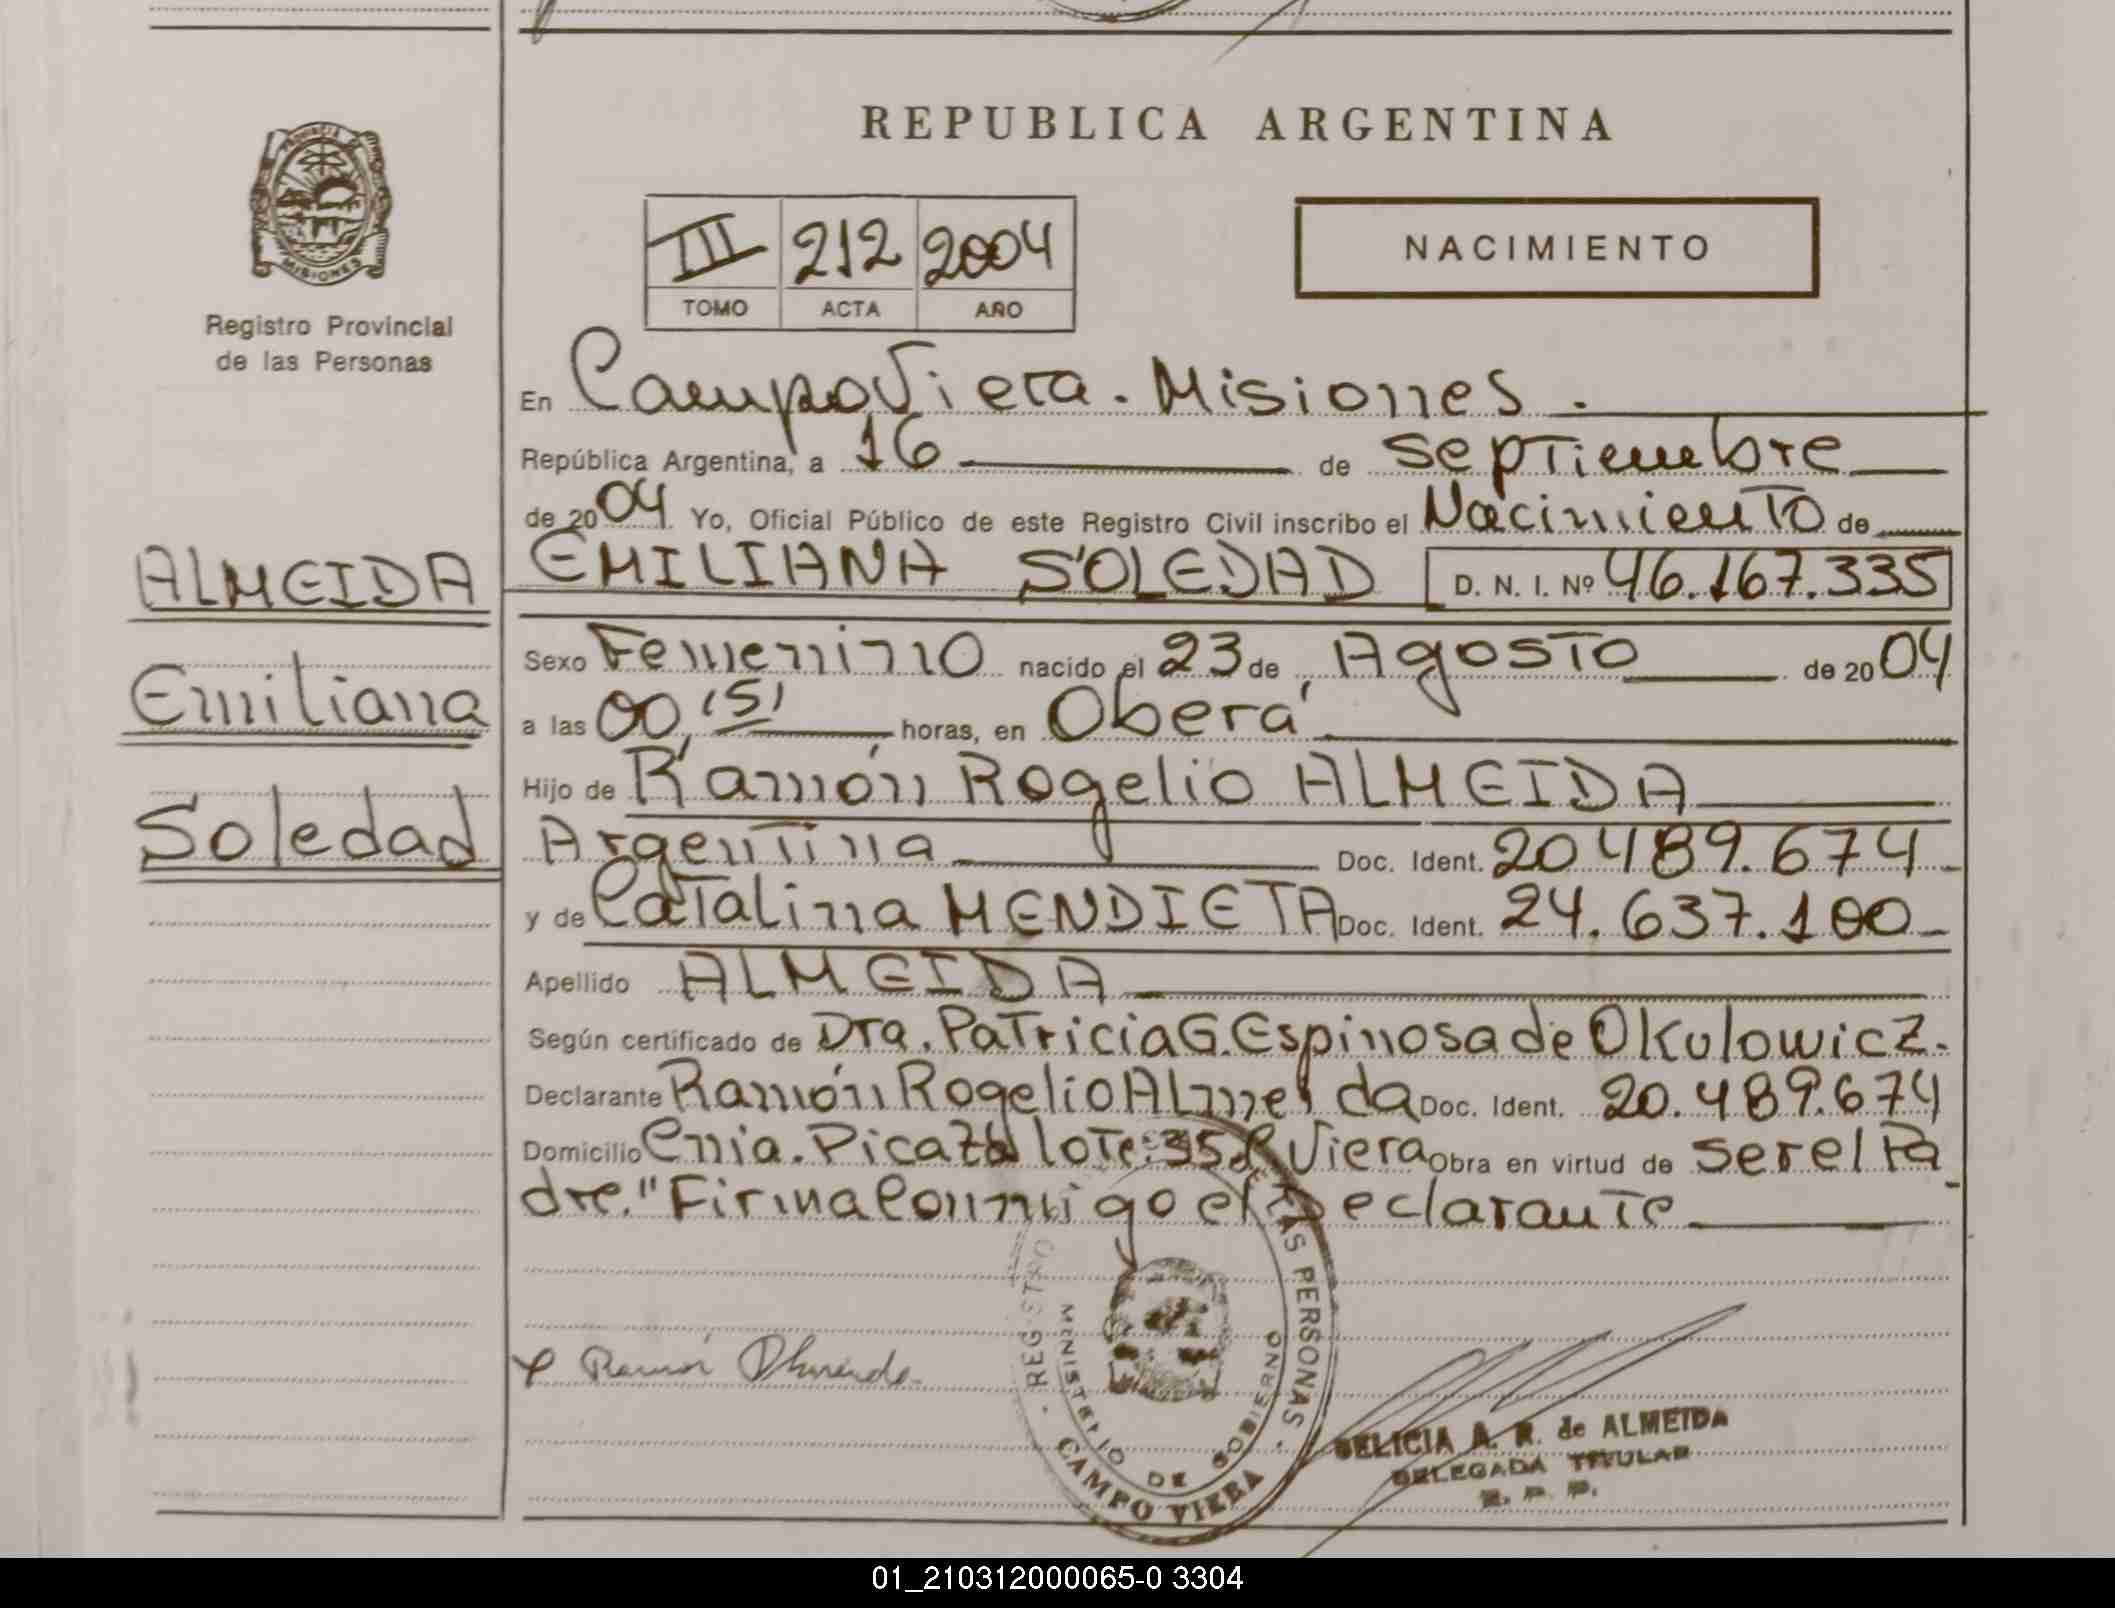 REPUBLICA ARGENTINA
PROVINCIA DE
MISIONES
Registro Provincial
de las Personas
III 212 2004
TOMO ACTA AÑO
NACIMIENTO
En Campo Viera. Misiones.
República Argentina, a 16 de septiembre
de 2004 Yo, Oficial Público de este Registro Civil inscribo el Nacimiento de
EMILIANA SOLEDAD D. N. I. Nº 46.167.335
ALMEIDA
Emiliana
Soledad
Sexo Femenino nacido el 23 de Agosto de 2004
a las 00,15' horas, en Oberá
Hijo de Ramón Rogelio ALMEIDA
Argentina Doc. Ident. 20.489.674
y de Catalina MENDIETA Doc. Ident. 24.637.100
Apellido ALMEIDA
Según certificado de Dra. Patricia G. Espinosa de Okulowicz.
Declarante Ramón Rogelio Almeida Doc. Ident. 20.489.674
Domicilio Cnia. Picada lote: 35 Viera Obra en virtud de ser el Pa
dre." Firma Conmigo el Declarante
REGISTRO DE LAS PERSONAS
MINISTERIO DE GOBIERNO
CAMPO VIERA
Ramón Almeida
DELICIA A. R. de ALMEIDA
DELEGADA TITULAR
R. P. P.
01_210312000065-0 3304